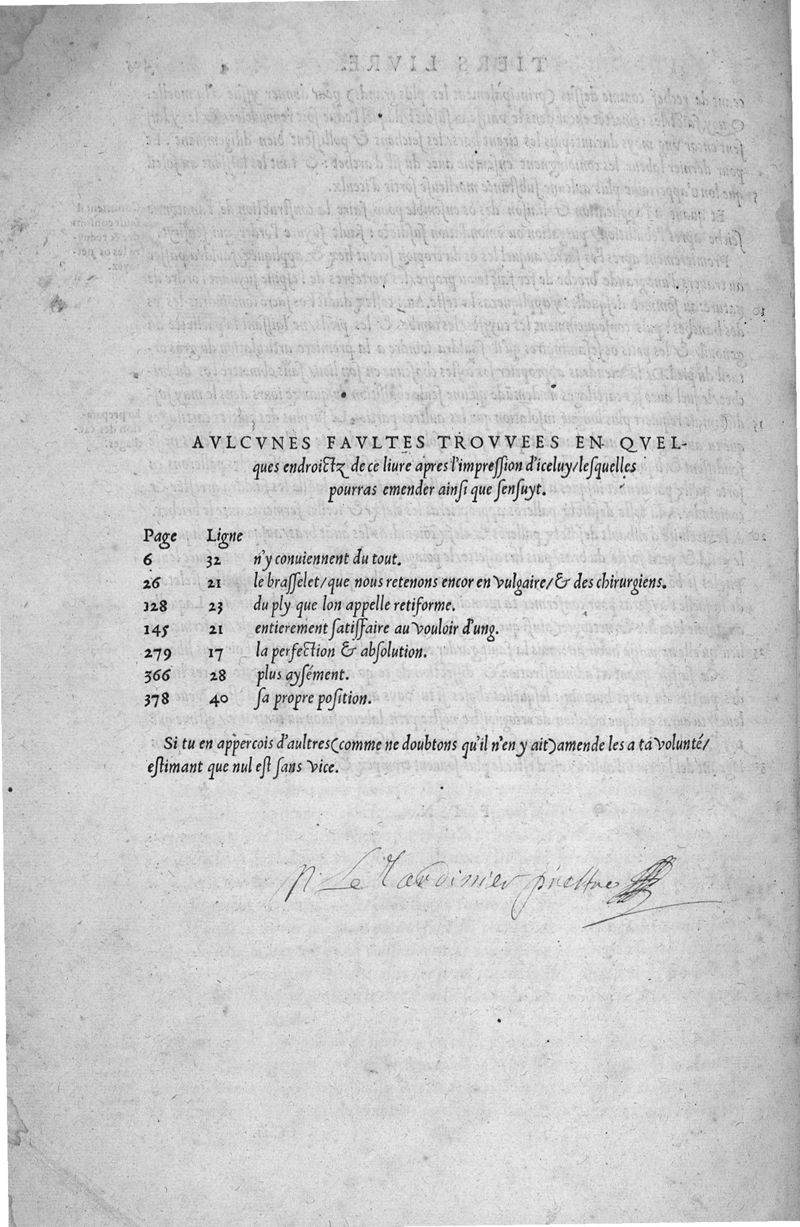 AVLCVNES FAVLTES TROVVEES EN QVEL-
ques endroictz de ce livre apres l'impression d'iceluy/lesquelles
pourras emender ainsi que sensuyt.
Page Ligne
6 32 n'y conuiennent du tout.
26 21 le brasselet/que nous retenons encor en vulgaire/& des chirurgiens.
328 23 du ply que lon appelle retiforme.
145 21 entierement satisfaire au vouloir d'ung.
279 17 la perfection & absolution.
366 28 plus aysément.
378 40 sa propre position.
Si tu en appercois d'aultres(comme ne doubtons qu'il n'en y ait)amende les a ta volunté/
estimant que nul est sans vice.
Le prestre